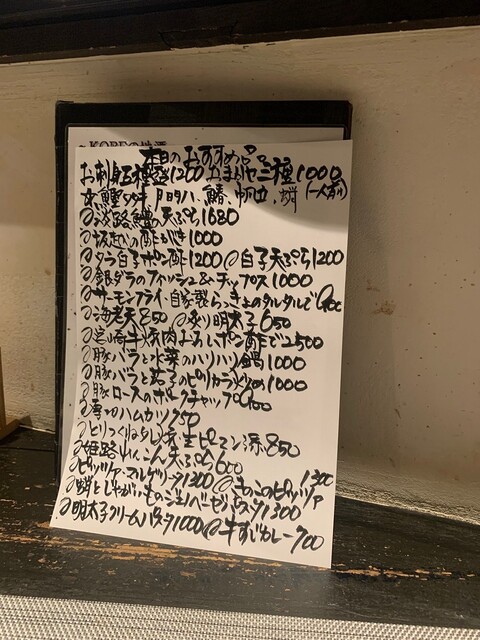 KOBEの地酒
本日のおすすめ品
お刺身五種盛1200 おまかせ三種1000
鰹タタキ、鰆、帆立、(一人前)
淡路鱧の天ぷら1680
坂越の酢がき1000
タラ白子ポン酢1200 白子天ぷら1200
銀ダラのフィッシュ&チップス1000
サーモンフライ 自家製らっきょのタルタルで900
海老天850 炙り明太子650
宮崎牛焼肉おろしポン酢で2500
豚バラと水菜のハリハリ鍋1000
豚バラと茄子のピリカラ炒め1000
豚ロースのポークチャップ
厚切ハムカツ750
とりつくね タレ 生ピーマン添850
姫路れんこん天ぷら600
ピッツァマルゲリータ1300 きのこのピッツァ1300
蛸としゃがいものジェノベーゼパスタ1300
明太子クリームパスタ1000 牛すじカレー700